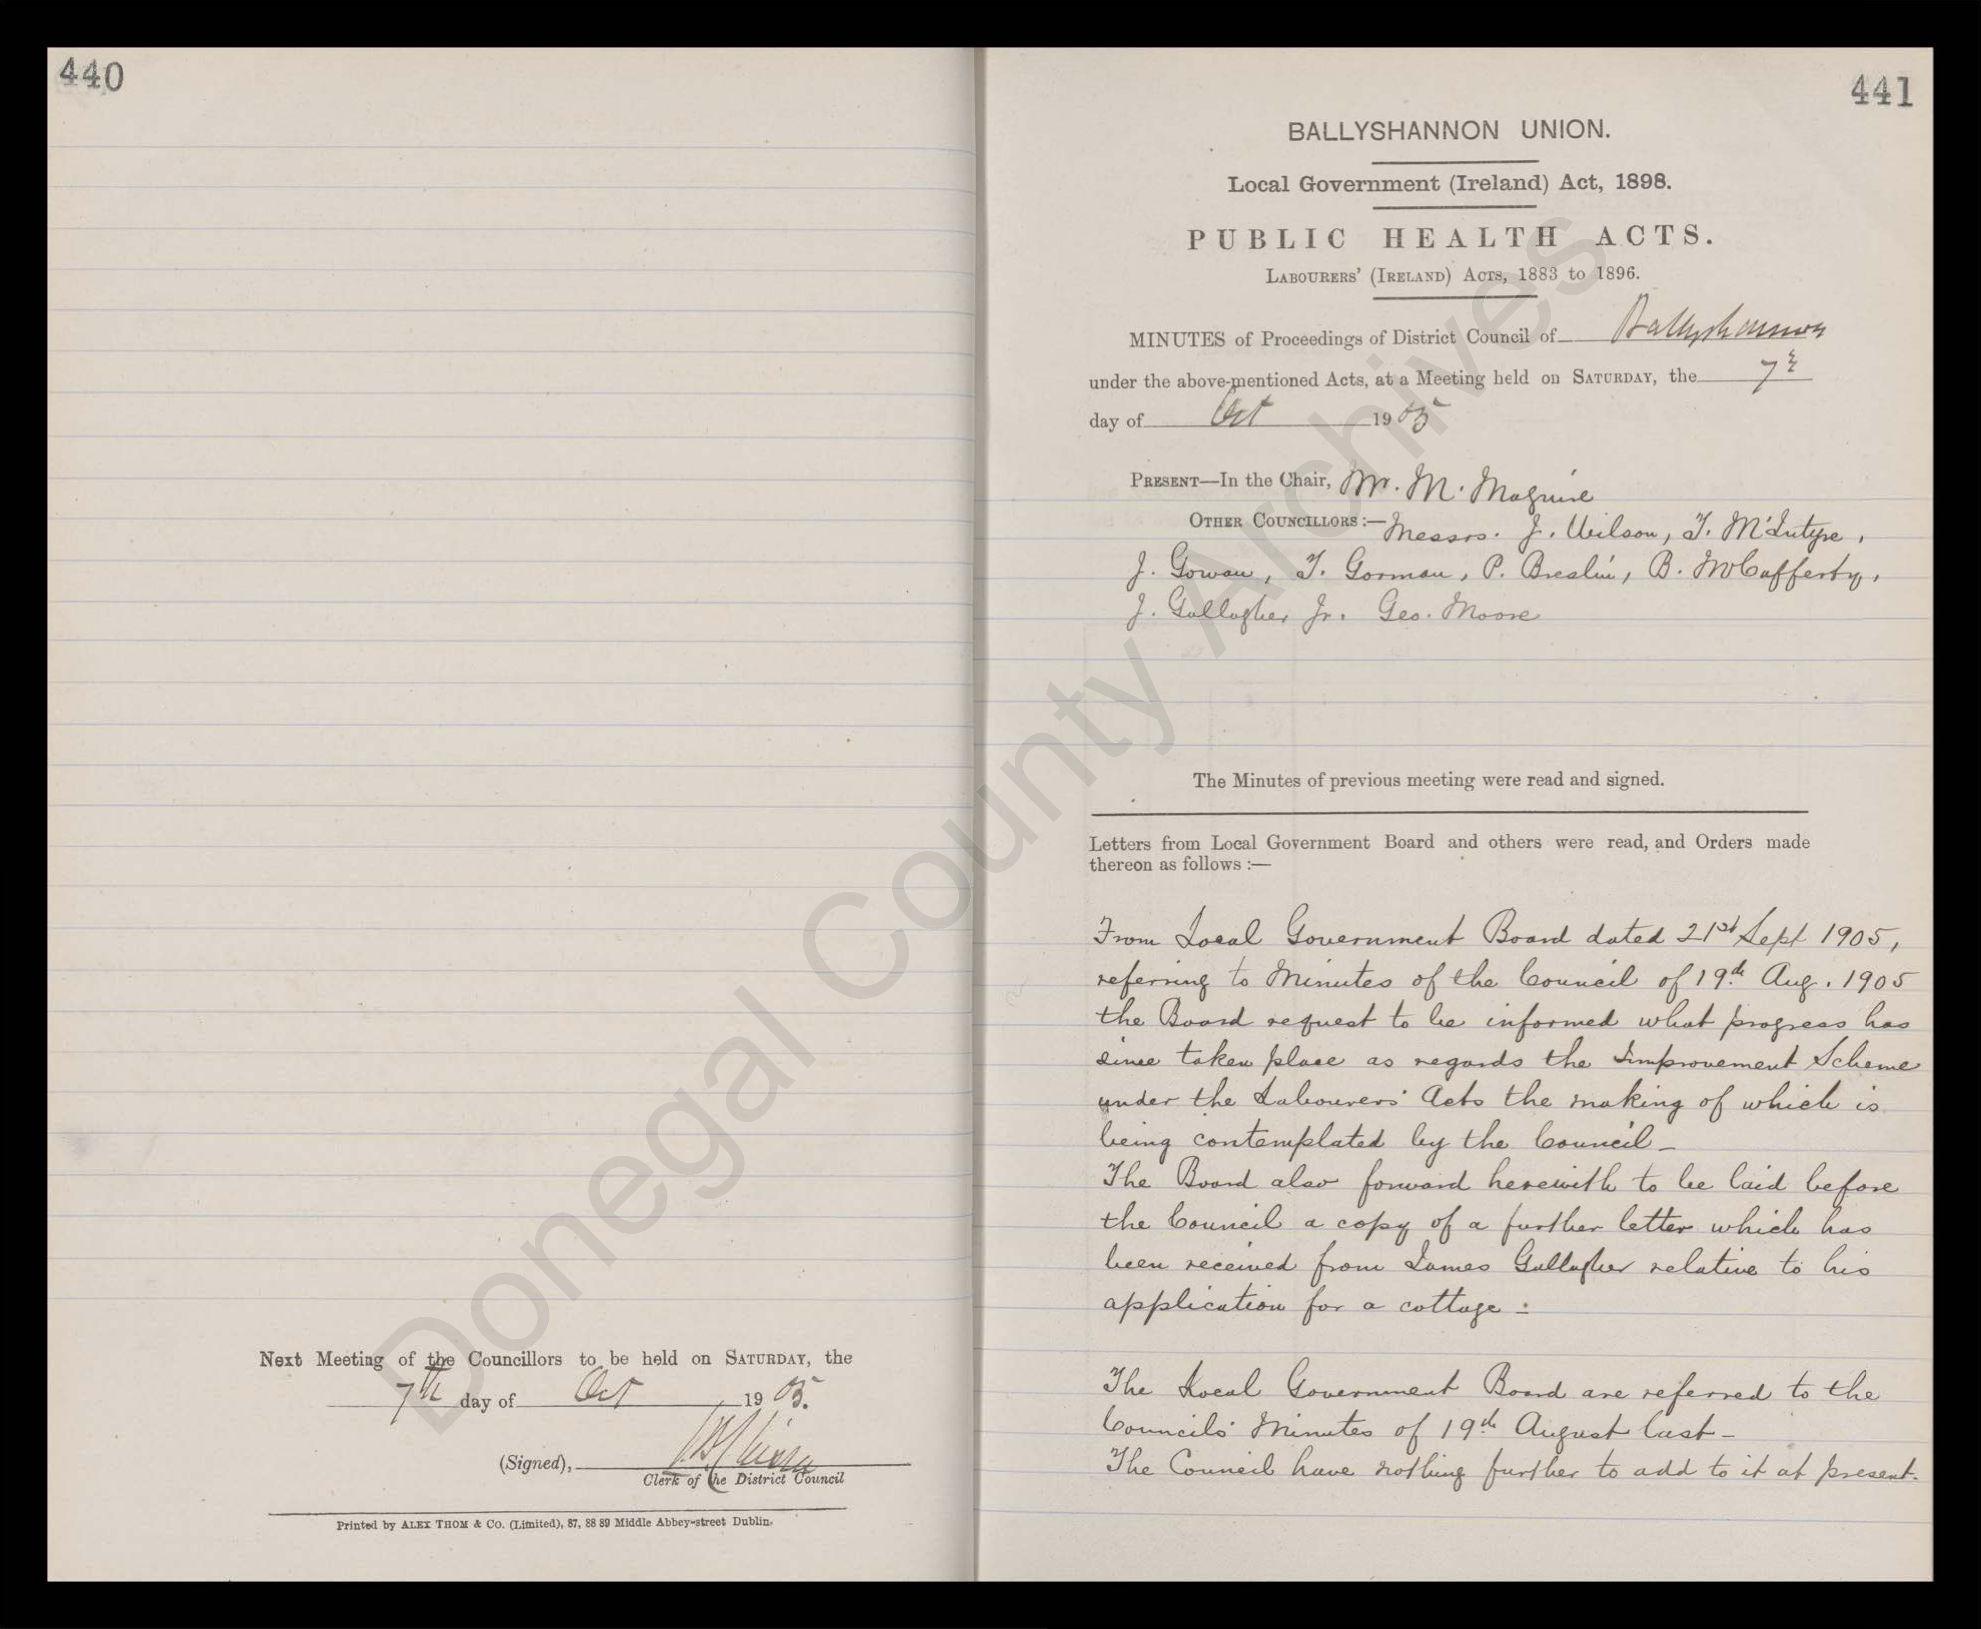 440
Next Meeting of the Councillors to be held on SATURDAY, the
7th day of Oct 1905.
(Signed),
Clerk of the District Council
Printed by ALEX THOM & Co. (Limited), 87, 88 89 Middle Abbey-street Dublin.
441
BALLYSHANNON UNION.
Local Government (Ireland) Act, 1898.
PUBLIC HEALTH ACTS.
LABOURERS' (IRELAND) ACTS, 1883 to 1896.
MINUTES of Proceedings of District Council of Ballyshannon
under the above-mentioned Acts, at a Meeting held on SATURDAY, the 7th
day of Oct 1905
PRESENT—In the Chair, Mr. M. Maguire
OTHER COUNCILLORS:—Messrs. J. Wilson, T. McIntyre,
J. Gowan, T. Gorman, P. Breslin, B. McCafferty,
J. Gallagher Jr. Geo. Moore
The Minutes of previous meeting were read and signed.
Letters from Local Government Board and others were read, and Orders made
thereon as follows:—
From Local Government Board dated 21st Sept 1905,
referring to Minutes of the Council of 19th Aug. 1905
the Board request to be informed what progress has
since taken place as regards the Improvement Scheme
under the Labourers' Acts the making of which is
being contemplated by the Council—
The Board also forward herewith to be laid before
the Council a copy of a further letter which has
been received from James Gallagher relative to his
application for a cottage:
The Local Government Board are referred to the
Councils' Minutes of 19th August last—
The Council have nothing further to add to it at present.
Donegal County Archives